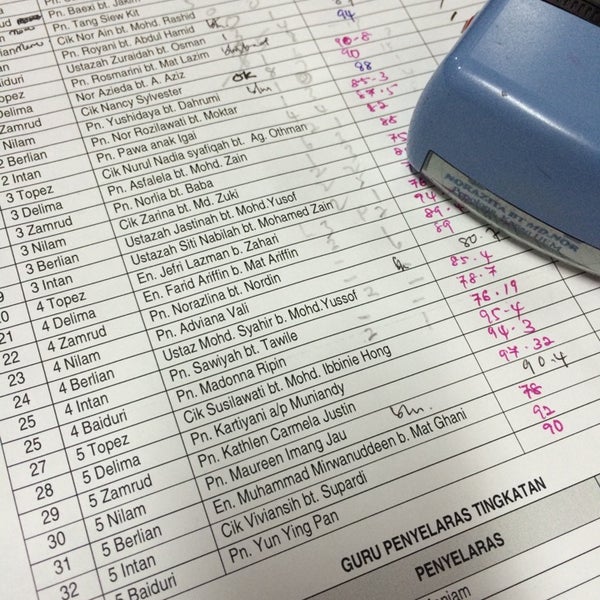 Pn. Baexi bt.
Pn. Tang Siew Kit
Cik Nor Ain bt. Mohd. Rashid
Pn. Royani bt. Abdul Hamid 94
Baiduri Ustazah Zuraidah bt. Osman
Topez Pn. Rosmarini bt. Mat Lazim 90-8
Delima Nor Azieda bt. A. Aziz 90
Zamrud Cik Nancy Sylvester OK 88
Nilam Pn. Yushidaya bt. Dahrumi 85.3
2 Berlian Pn. Nor Rozilawati bt. Moktar 87.5
2 Intan Pn. Pawa anak Igai 82
3 Topez Cik Nurul Nadia syafiqah bt. Ag. Othman 88
3 Delima Pn. Asfalela bt. Mohd. Zain 75
3 Zamrud Pn. Norlia bt. Baba
3 Nilam Cik Zarina bt. Md. Zuki
3 Berlian Ustazah Jastinah bt. Mohd.Yusof
3 Intan Ustazah Siti Nabilah bt. Mohamed Zain
4 Topez En. Jefri Lazman b. Zahari 94
21 4 Delima En. Farid Ariffin b. Mat Ariffin 89.
22 4 Zamrud Pn. Norazlina bt. Nordin 89
23 4 Nilam Pn. Adviana Vali 80.7
24 4 Berlian Ustaz Mohd. Syahir b. Mohd.Yussof 85.4
25 4 Intan Pn. Sawiyah bt. Tawile 78.7
25 4 Baiduri Pn. Madonna Ripin 76.19
27 5 Topez Cik Susilawati bt. Mohd. Ibbinie Hong 95.4
28 5 Delima Pn. Kartiyani a/p Muniandy 94.3
29 5 Zamrud Pn. Kathlen Carmela Justin 97.32
30 5 Nilam Pn. Maureen Imang Jau 90.4
31 5 Berlian En. Muhammad Mirwanuddeen b. Mat Ghani 78
32 5 Intan Cik Viviansih bt. Supardi 92
5 Baiduri Pn. Yun Ying Pan 90
GURU PENYELARAS TINGKATAN
PENYELARAS
NORAZITA BT MD NOR